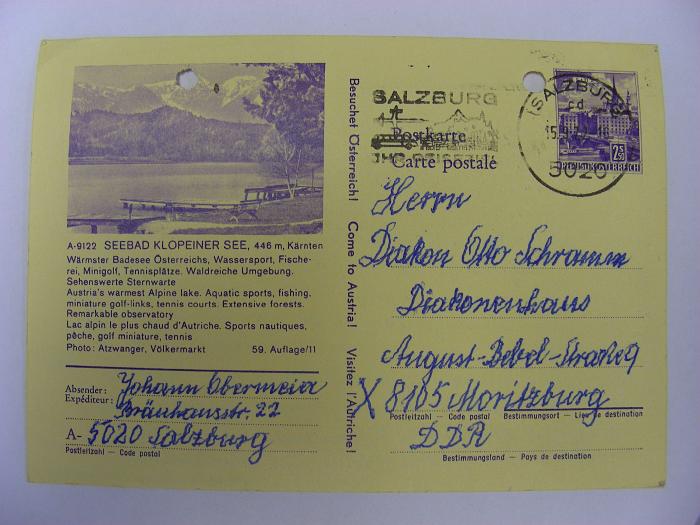 A-9122 SEEBAD KLOPEINER SEE, 446 m, Kärnten
Wärmster Badesee Österreichs, Wassersport, Fische-
rei, Minigolf, Tennisplätze. Waldreiche Umgebung.
Sehenswerte Sternwarte
Austria's warmest Alpine lake. Aquatic sports, fishing,
miniature golf-links, tennis courts. Extensive forests.
Remarkable observatory
Lac alpin le plus chaud d'Autriche. Sports nautiques,
pêche, golf miniature, tennis
Photo: Atzwanger, Völkermarkt 59. Auflage/11
Absender: Johann Obermeir
Expéditeur: Bräuhausstr. 22
A- 5020 Salzburg
Postleitzahl — Code postal
Besuchet Österreich! Come to Austria! Visitez l'Autriche!
SALZBURG
Postkarte
Carte postale
SALZBURG
cd
5020
2.50
REPUBLIK ÖSTERREICH
Herrn
Diakon Otto Schramm
Diakonenhaus
August-Bebel-Straße
X 8105 Moritzburg
Postleitzahl — Code postal Bestimmungsort — Lieu de destination
DDR
Bestimmungsland — Pays de destination